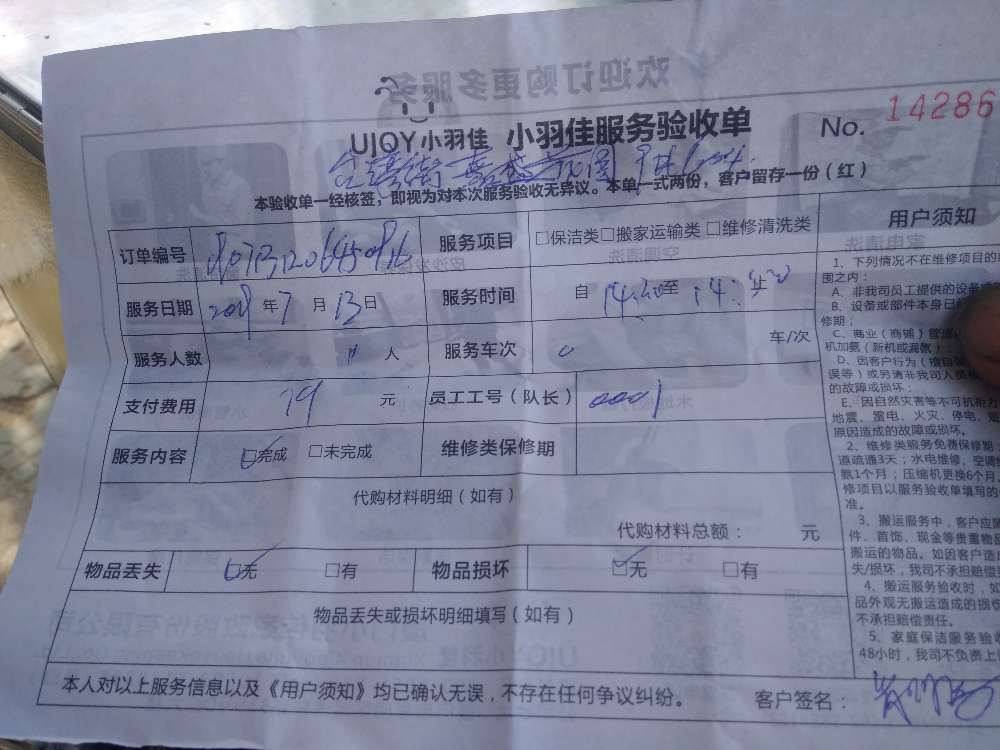 欢迎订购更多服务
UJOY小羽佳 小羽佳服务验收单
No. 14286
本验收单一经核签，即视为对本次服务验收无异议。本单一式两份，客户留存一份（红）
订单编号
服务项目 □保洁类□搬家运输类 □维修清洗类
服务日期 年7月13日
服务时间 自 至
服务人数 人
服务车次 0 车/次
支付费用 79 元
员工工号（队长） 0001
服务内容 ☑完成 □未完成
维修类保修期
代购材料明细（如有）
代购材料总额： 元
物品丢失 ☑无 □有
物品损坏 ☑无 □有
物品丢失或损坏明细填写（如有）
本人对以上服务信息以及《用户须知》均已确认无误，不存在任何争议纠纷。
客户签名：
用户须知
1、下列情况不在维修项目的
围之内：
A、非我司员工提供的设备
B、设备或部件本身已
修期；
C、商业（商铺）
机加氨（新机或漏氨）
D、因客户行为（擅自
误等）或另请非我司人员
的故障或损坏；
E、因自然灾害等不可抗拒
地震、雷电、火灾、停电、
原因造成的故障或损坏。
2、维修类服务免费保修期
道疏通3天；水电维修、空调
氨1个月；压缩机更换6个月
修项目以服务验收单填写的
准。
3、搬运服务中，客户应
件、首饰、现金等贵重物品
搬运的物品。如因客户造
失/损坏，我司不承担赔偿
4、搬运服务验收时，如
品外观无搬运造成的损
不承担赔偿责任。
5、家庭保洁服务验收
48小时，我司不负责上